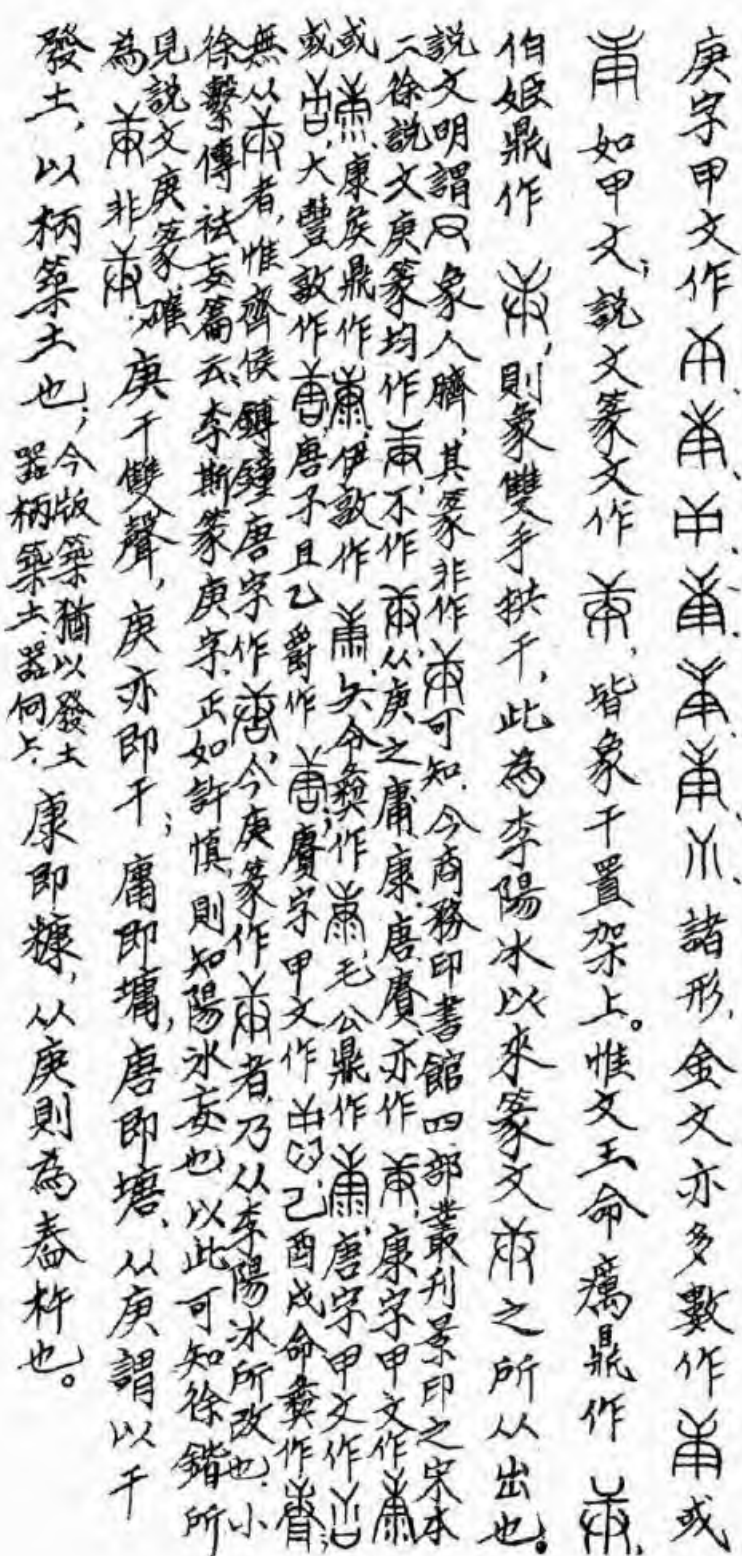 庚字甲文作、、、、、、諸形，金文亦多數作或
如甲文；說文篆文作，皆象干置架上。惟文王命癘鼎作，
伯姬鼎作，則象雙手拱干，此為李陽冰以來篆文之所从出也。
說文明謂象人臍，其篆非作可知。今商務印書館四部叢刊景印之宋本
二徐說文庚篆均作，不作，从庚之庸、康、唐、賡亦作，康字甲文作
或，康侯鼎作，伊敦作，矢令彝作，毛公鼎作，唐字甲文作
或，大豐敦作，唐子且乙爵作，賡字甲文作，己酉戍命彝作；
無从者，惟齊侯鎛鐘唐字作，今庚篆作者，乃从李陽冰所改也。小
徐繫傳祛妄篇云：李斯篆庚字，正如許慎，則知陽冰妄也，以此可知徐鍇所
見說文庚篆，確
為非。庚干雙聲，庚亦即干；庸即墉，唐即塘，从庚謂以干
發土，以柄築土也；今版築猶以發土
器柄築土，器同上。康即糠，从庚則為舂杵也。